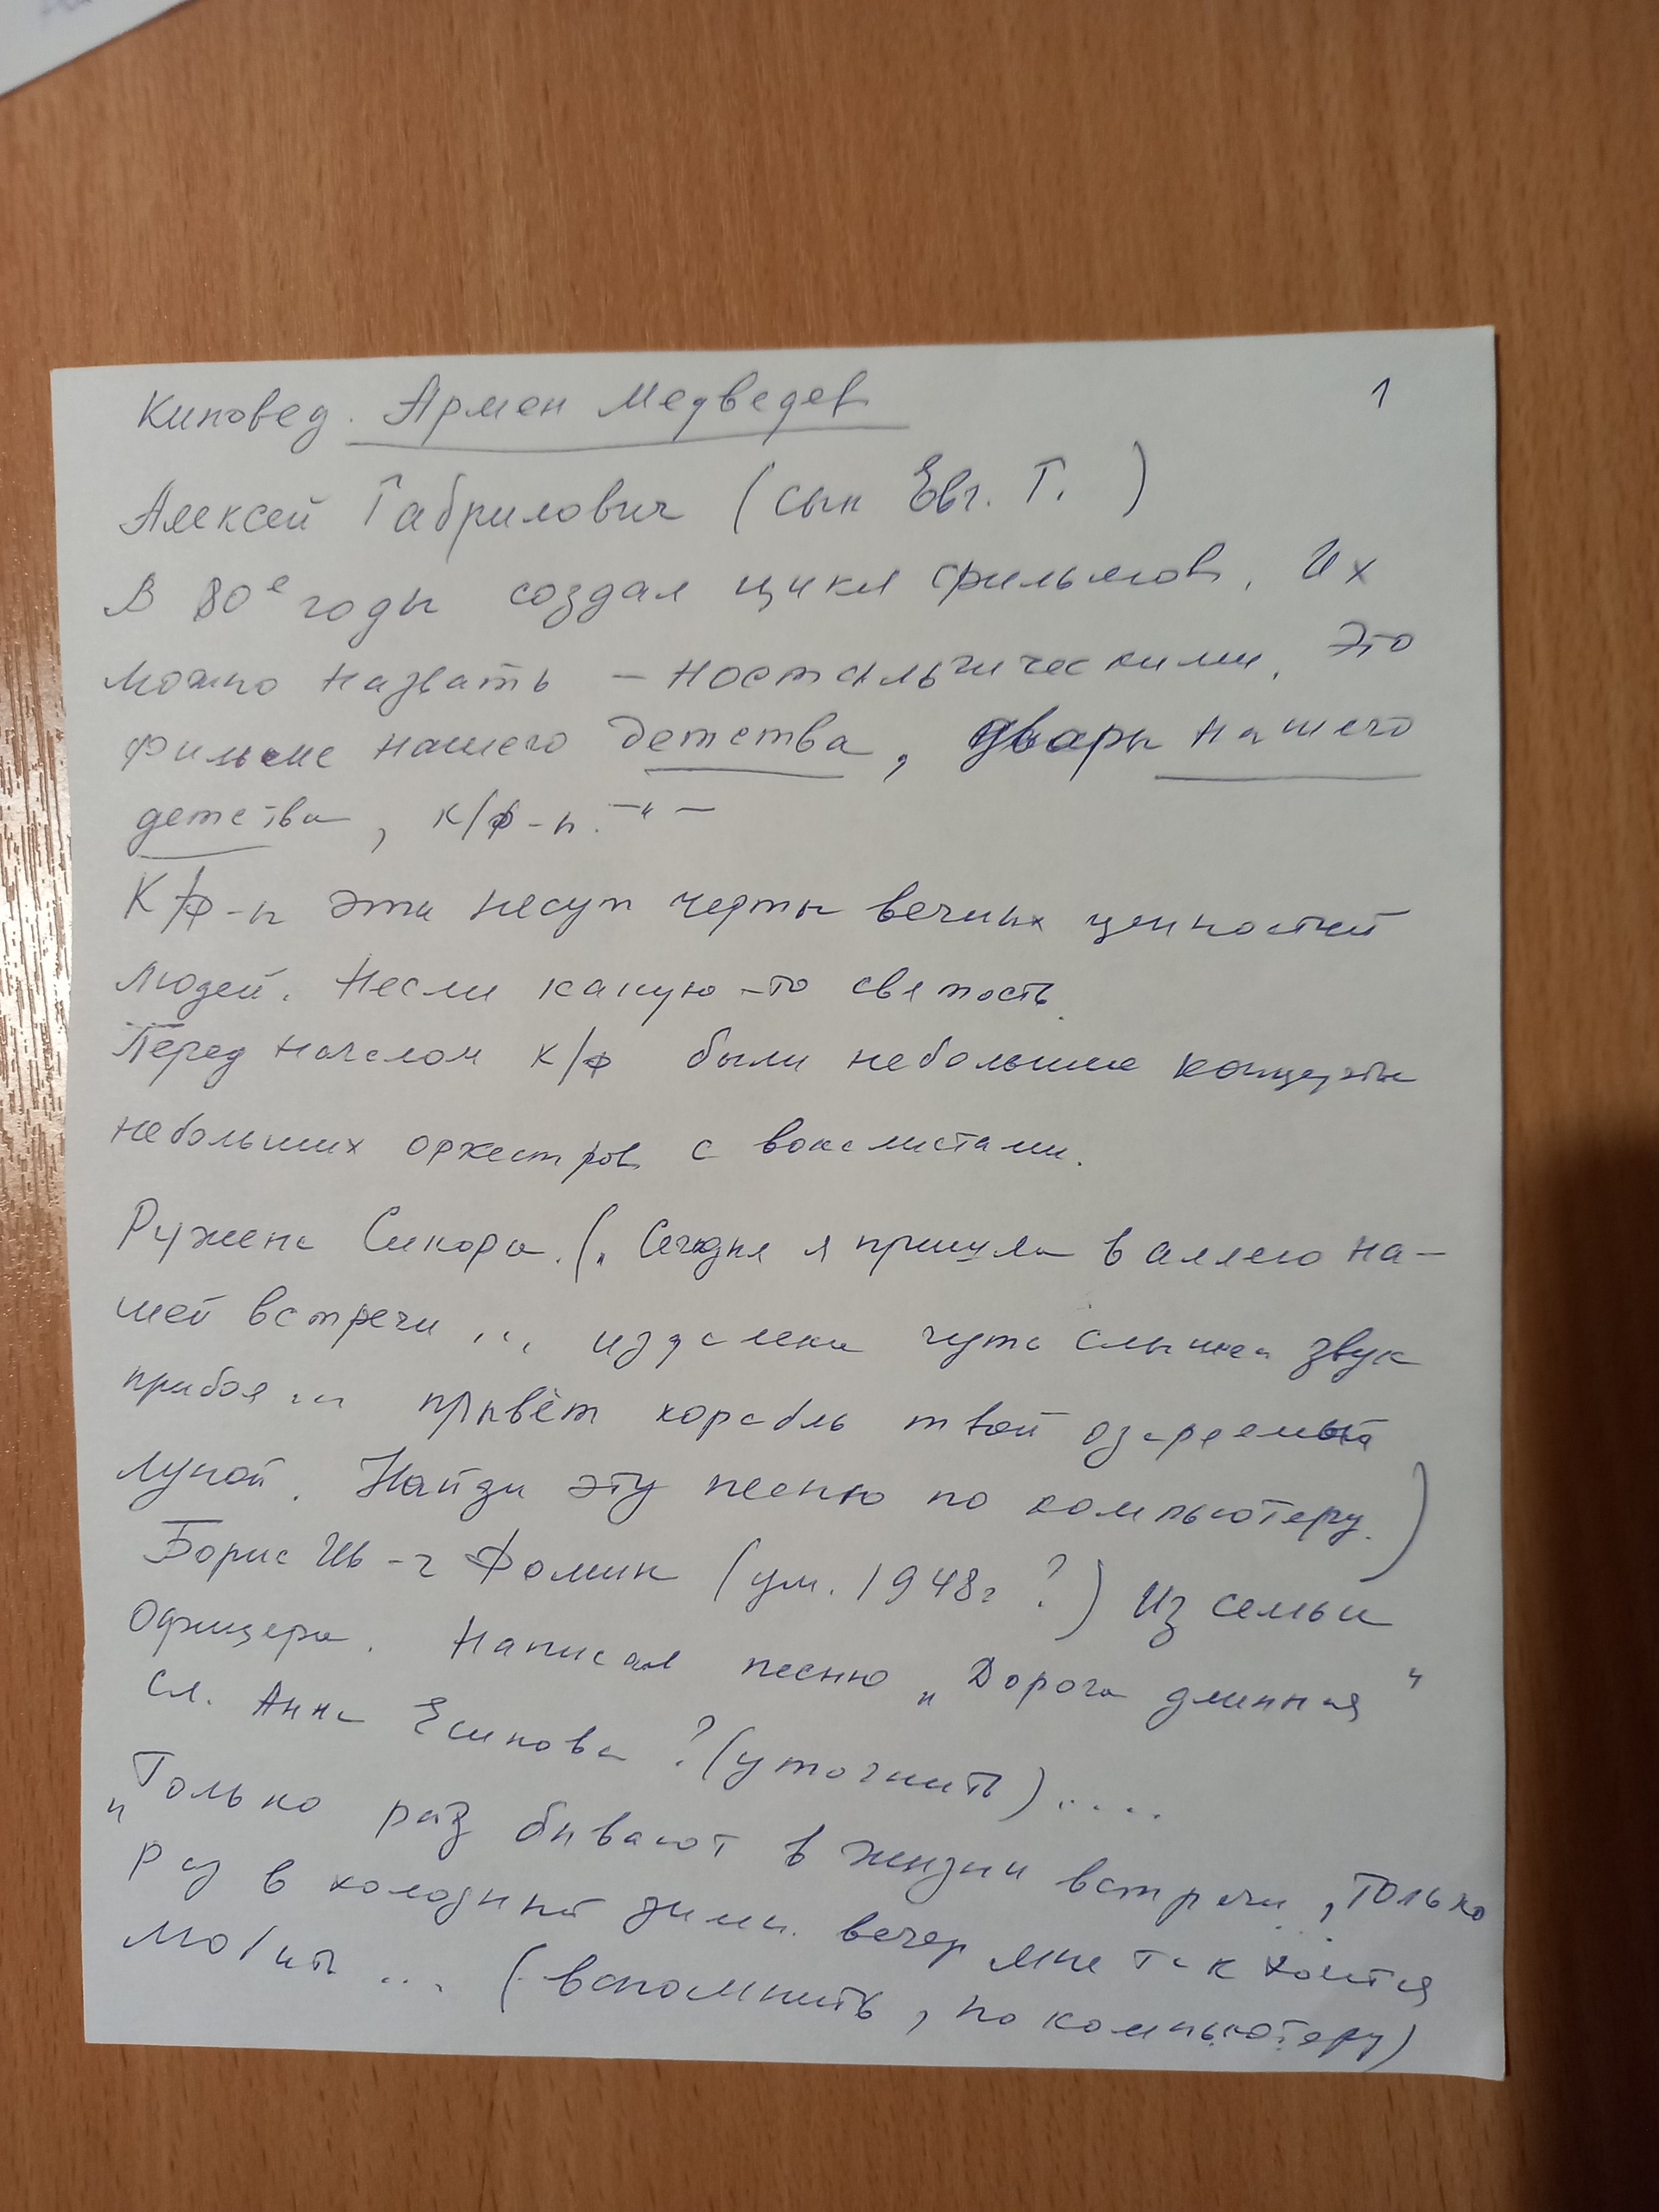 Киновед. Армен Медведев 1
Алексей Габрилович (сын Евг. Г. )
В 80е годы создал цикл фильмов. Их
можно назвать – ностальгическими. Это
фильмы нашего детства, дворы нашего
детства, к/ф-ы. –"–
К/ф-ы эти несут черты вечных ценностей
людей. Несли какую-то святость.
Перед началом к/ф были небольшие концерты
небольших оркестров с вокалистами.
Ружена Сикора. („Сегодня я пришла в аллею на-
шей встречи ... издалека чуть слышен звук
прибоя ... плывёт корабль твой озаряемый
луной. Найди эту песню по компьютеру.)
Борис Ив-ч Фомин (ум. 1948г ?) Из семьи
офицера. Написал песню „Дорога длинная"
сл. Анна Есипова ? (уточнить) ....
„Только раз бывают в жизни встречи, только
раз в холодный зимн. вечер мне так хочется
... (вспомнить, по компьютеру)